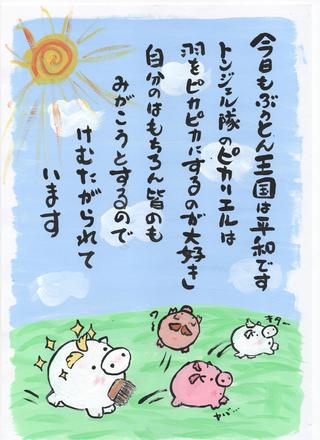 今日もぶぅとん王国は平和です
トンジェル隊のピカリエルは
羽をピカピカにするのが大好き♪
自分のはもちろん皆のも
みがこうとするので
けむたがられて
います
キター
ヤバ…